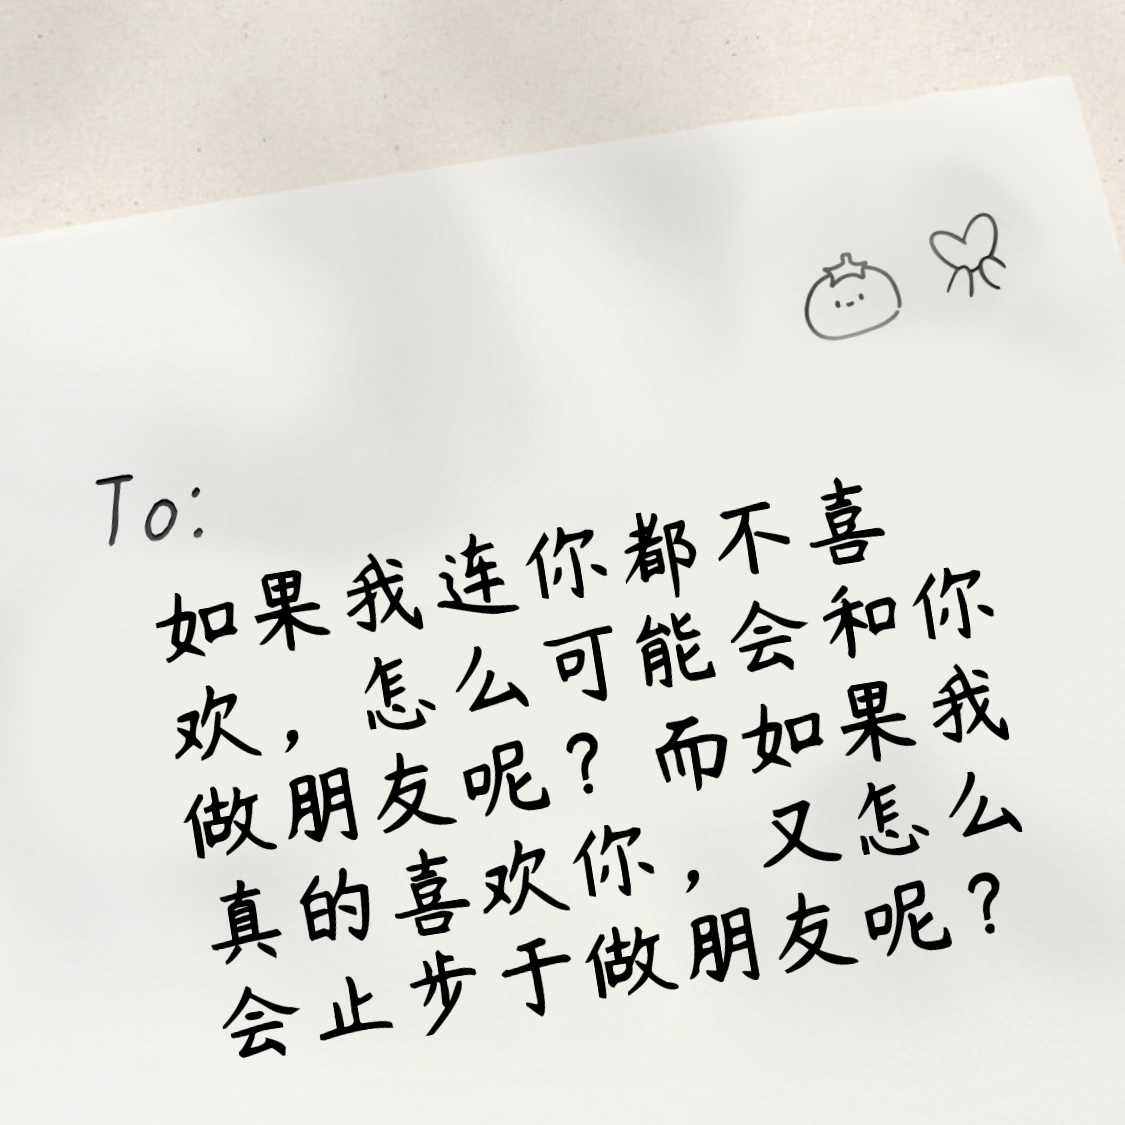 To:
如果我连你都不喜
欢，怎么可能会和你
做朋友呢？而如果我
真的喜欢你，又怎么
会止步于做朋友呢？